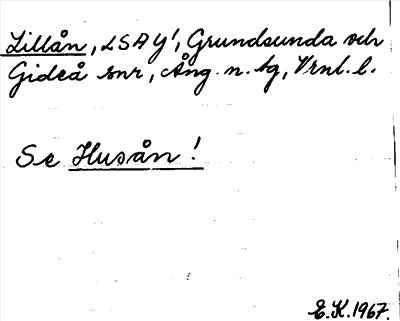 Lillån, LSAY!, Grundsunda och
Gideå snr, Ång. n. tg, Vrnl. l.
Se Husån!
E.K. 1967.